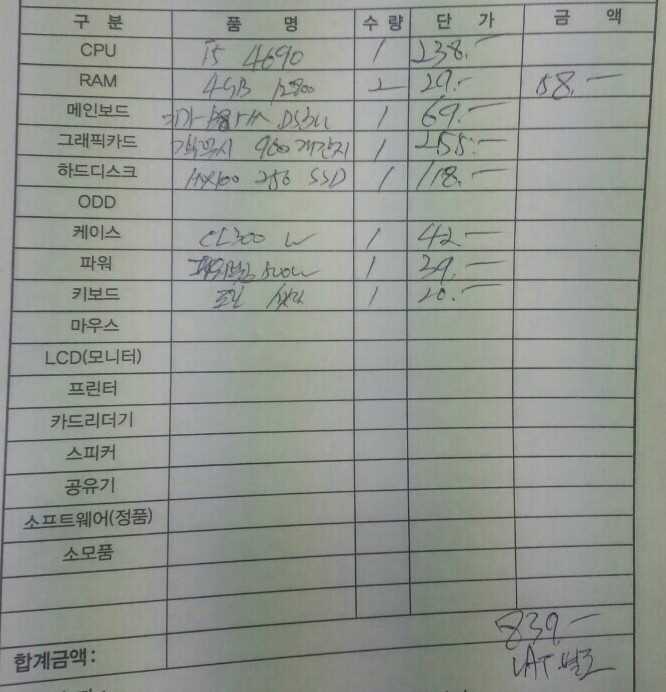 구 분 품 명 수 량 단 가 금 액
CPU i5 4690 1 238.-
RAM 4GB 12800 2 29.- 58.-
메인보드 기가 DS3H 1 69.-
그래픽카드 갤럭시 960 개간지 1 255.-
하드디스크 256 SSD 1 118.-
ODD
케이스 CL300 W 1 42.-
파워 500W 1 39.-
키보드 1 20.-
마우스
LCD(모니터)
프린터
카드리더기
스피커
공유기
소프트웨어(정품)
소모품
839.-
합계금액: VAT 별도